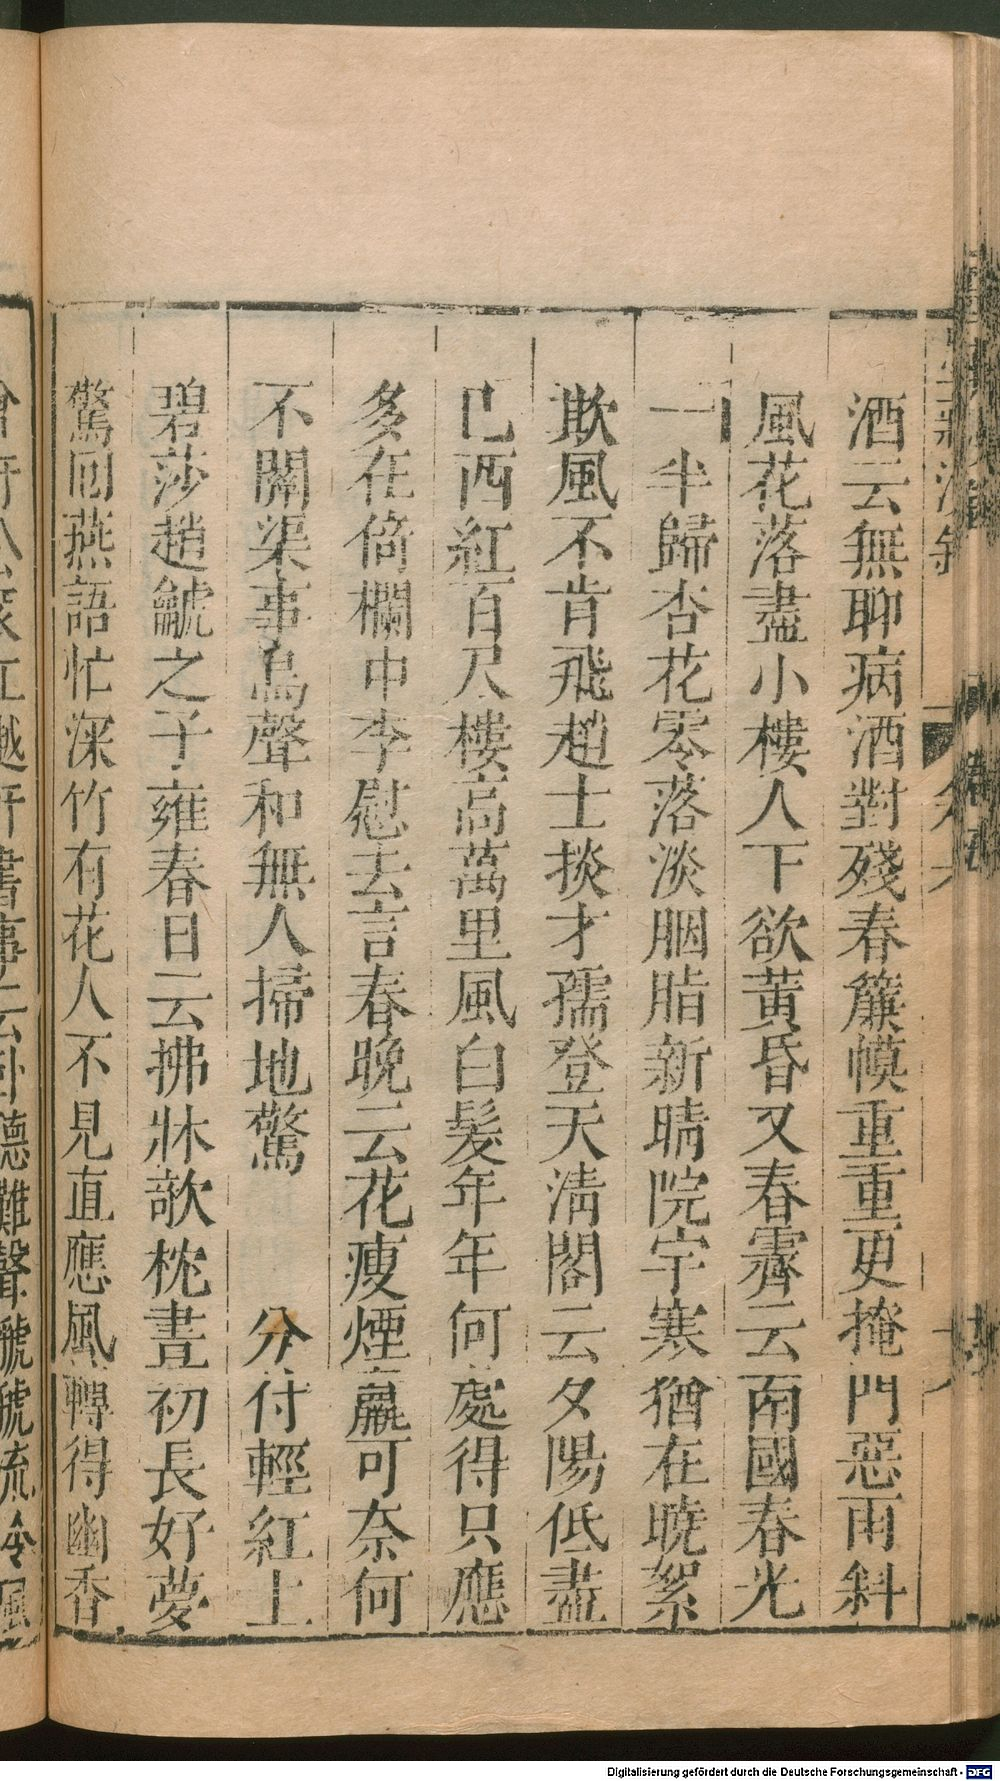 酒云無聊病酒對殘春簾幙重重更掩門惡雨斜
風花落盡小樓人下欲黃昏又春霽云南國春光
一半歸杏花零落淡胭脂新晴院宇寒猶在曉絮
欺風不肯飛趙士掞才孺登天清閣云夕陽低盡
已西紅百尺樓高萬里風白髮年年何處得只應
多在倚欄中李慰去言春晚云花瘦煙羸可奈何
不關渠事鳥聲和無人掃地驚 分付輕紅上
碧莎趙虤之子雍春日云拂牀欹枕晝初長好夢
驚回燕語忙深竹有花人不見直應風轉得幽香
Digitalisierung gefördert durch die Deutsche Forschungsgemeinschaft - DFG